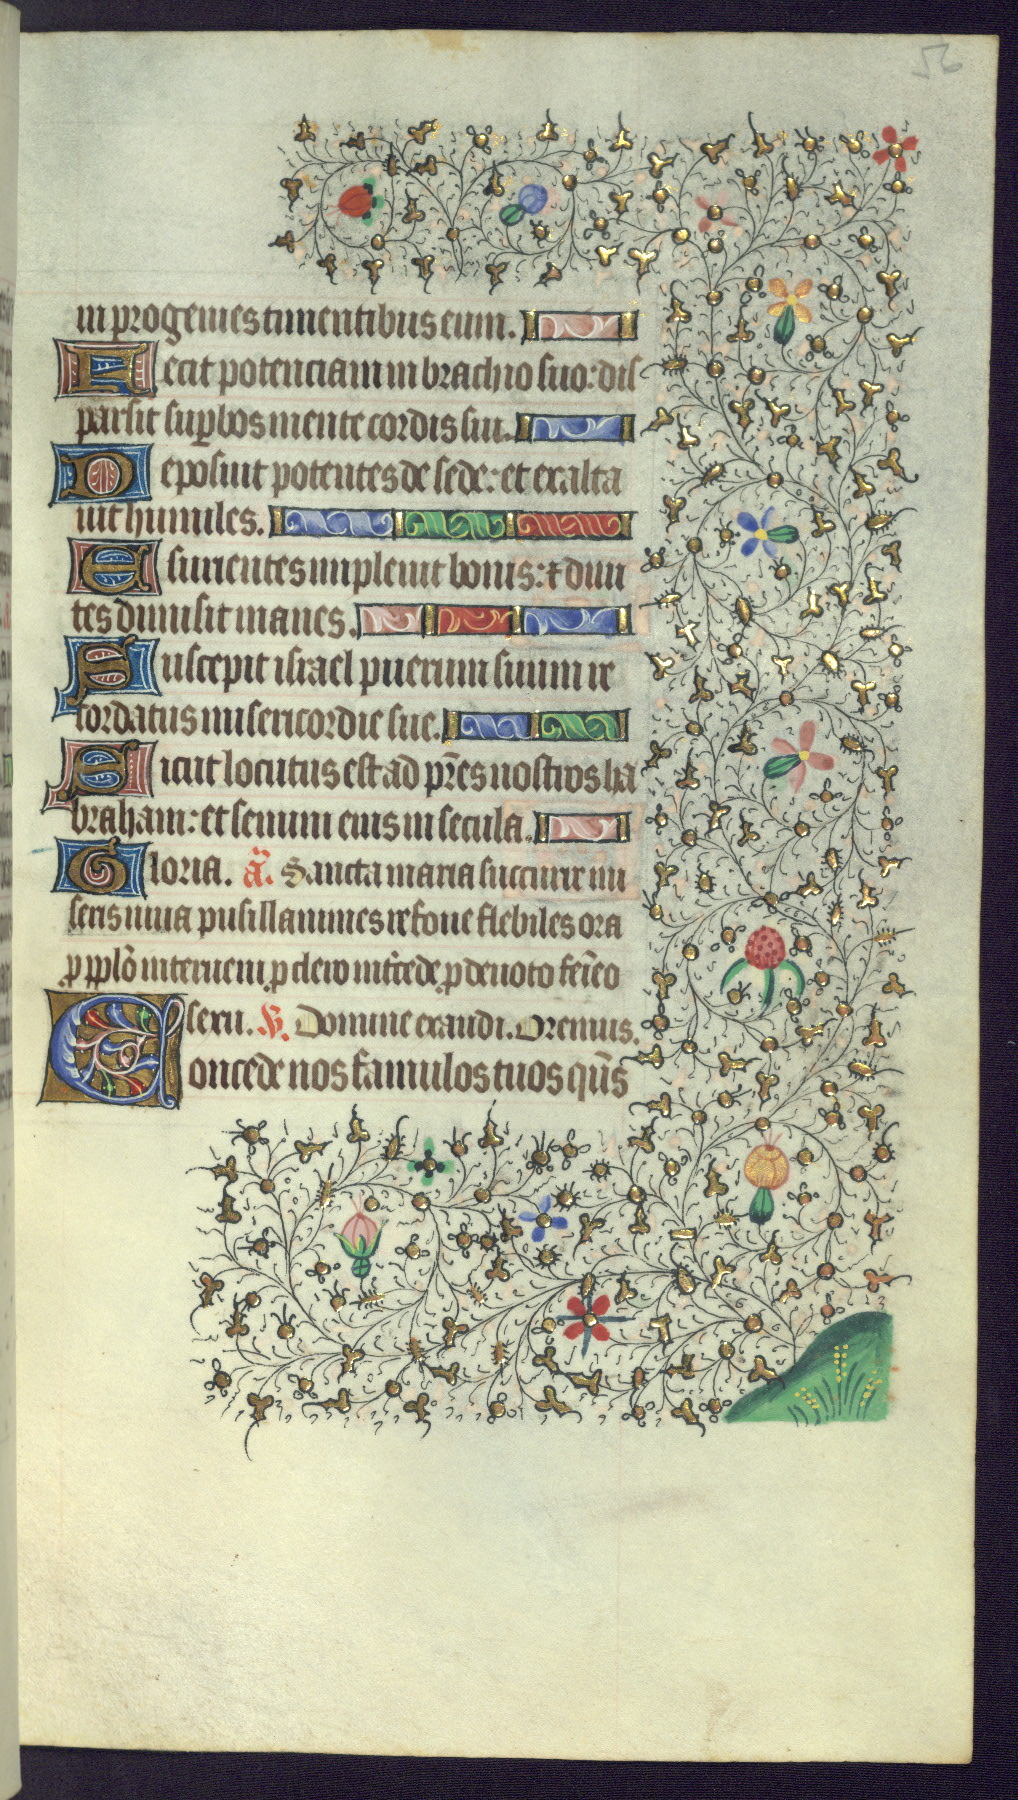 56
in progenies timentibus eum.
Fecit potenciam in brachio suo: dis
parsit suꝑbos mente cordis sui.
Deposuit potentes de sede: et exalta
uit humiles.
Esurientes impleuit bonis: ⁊ diui
tes dimisit inanes.
Suscepit israel puerum suum re
cordatus misericordie sue.
Sicut locutus est ad pr̃es nostros ha
braham: et semini eius in secula.
Gloria. añ. Sancta maria succurre mi
seris iuua pusillanimes refoue flebiles ora
ꝓ pplõ interueni ꝓ clero intc̃ede ꝓ deuoto fem̃eo
sexu. ℣. Domine exaudi. Oremus.
Concede nos famulos tuos qũs